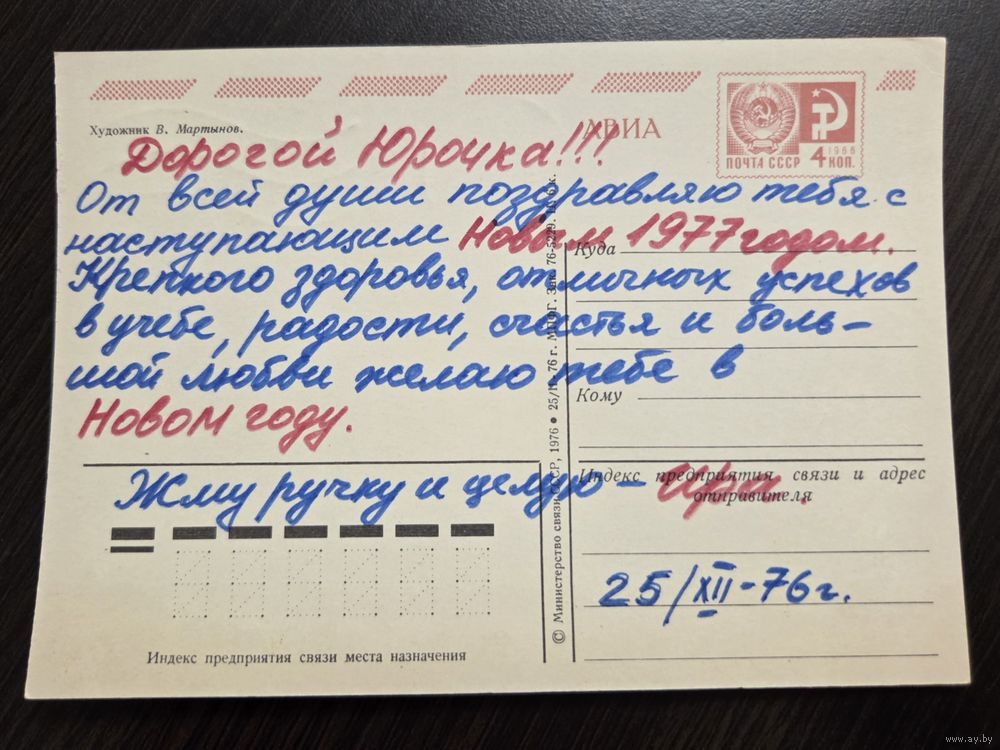 Художник В. Мартынов.
АВИА
ПОЧТА СССР
1966
4 КОП.
Дорогой Юрочка!!!
От всей души поздравляю тебя с
наступающим Новым 1977 годом.
Крепкого здоровья, отличных успехов
в учебе, радости, счастья и боль-
шой любви желаю тебе в
Новом году.
Жму ручку и целую –
25/XII-76 г.
Куда
Кому
Индекс предприятия связи и адрес
отправителя
© Министерство связи СССР, 1976 • 25/ 76 г. Зак. 76-5229. 6 к.
Индекс предприятия связи места назначения
www.ay.by